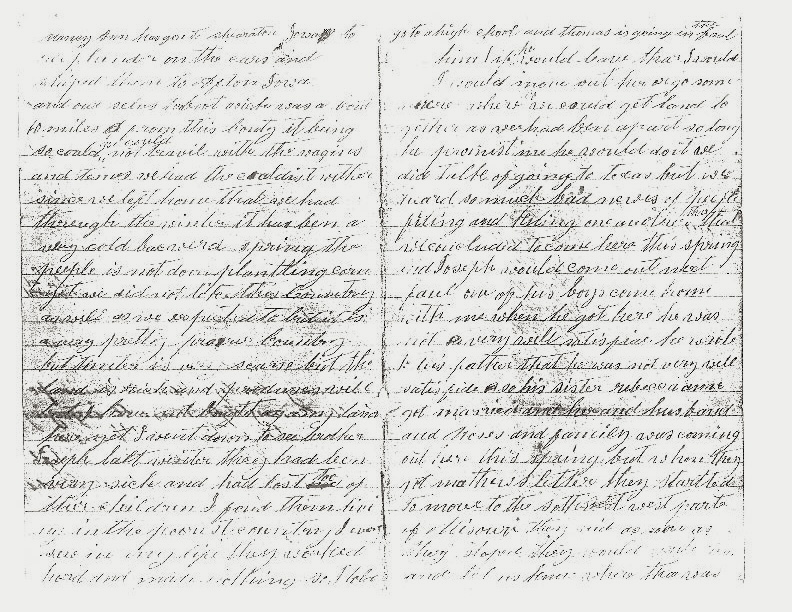 nancy ann has gon to charaton Iowa to
on the cars and
shiped them to Afton Iowa
and our selves
miles from this county it being
so could could not travil with the wagins
and teames we had the couldist wether
since we left home that we had
through the winter it has been a
very cold backward spring the
people is not don plantting corn
yet we did not like this Country
as well as we expected to but it is
a very pretty prarie Country
but timber is very scarse but the
land is rich and produces well
have not bought any land
here yet I went down to see brother
Joseph last winter they had been
very sick and had lost two of
their children I found them live
in in the poorist country I ever
saw in my life they worked
hard and made nothing so I told
to a high chool and thomas is going in the
him if he would leave thar I would
I would move out her or go some
where where we could get land to
gether as we had been apart so long
he promist me he would do it we
did talk of going to texas but we
heard so much bad newes of people
and killing one another that
we concluded to come here this spring
and Joseph would come out next
faul one of his boys come home
with me when he got here he was
not very well satisfied he wrote
to his father that he was not very well
satisfide so his sister rebecca anne
got married and her and husband
and Moses and family was coming
out here this spring but when they
got mathews letter they started
to move to the west parte
of Missouri they said as soon as
they stoped they would write
and let us know where tha was